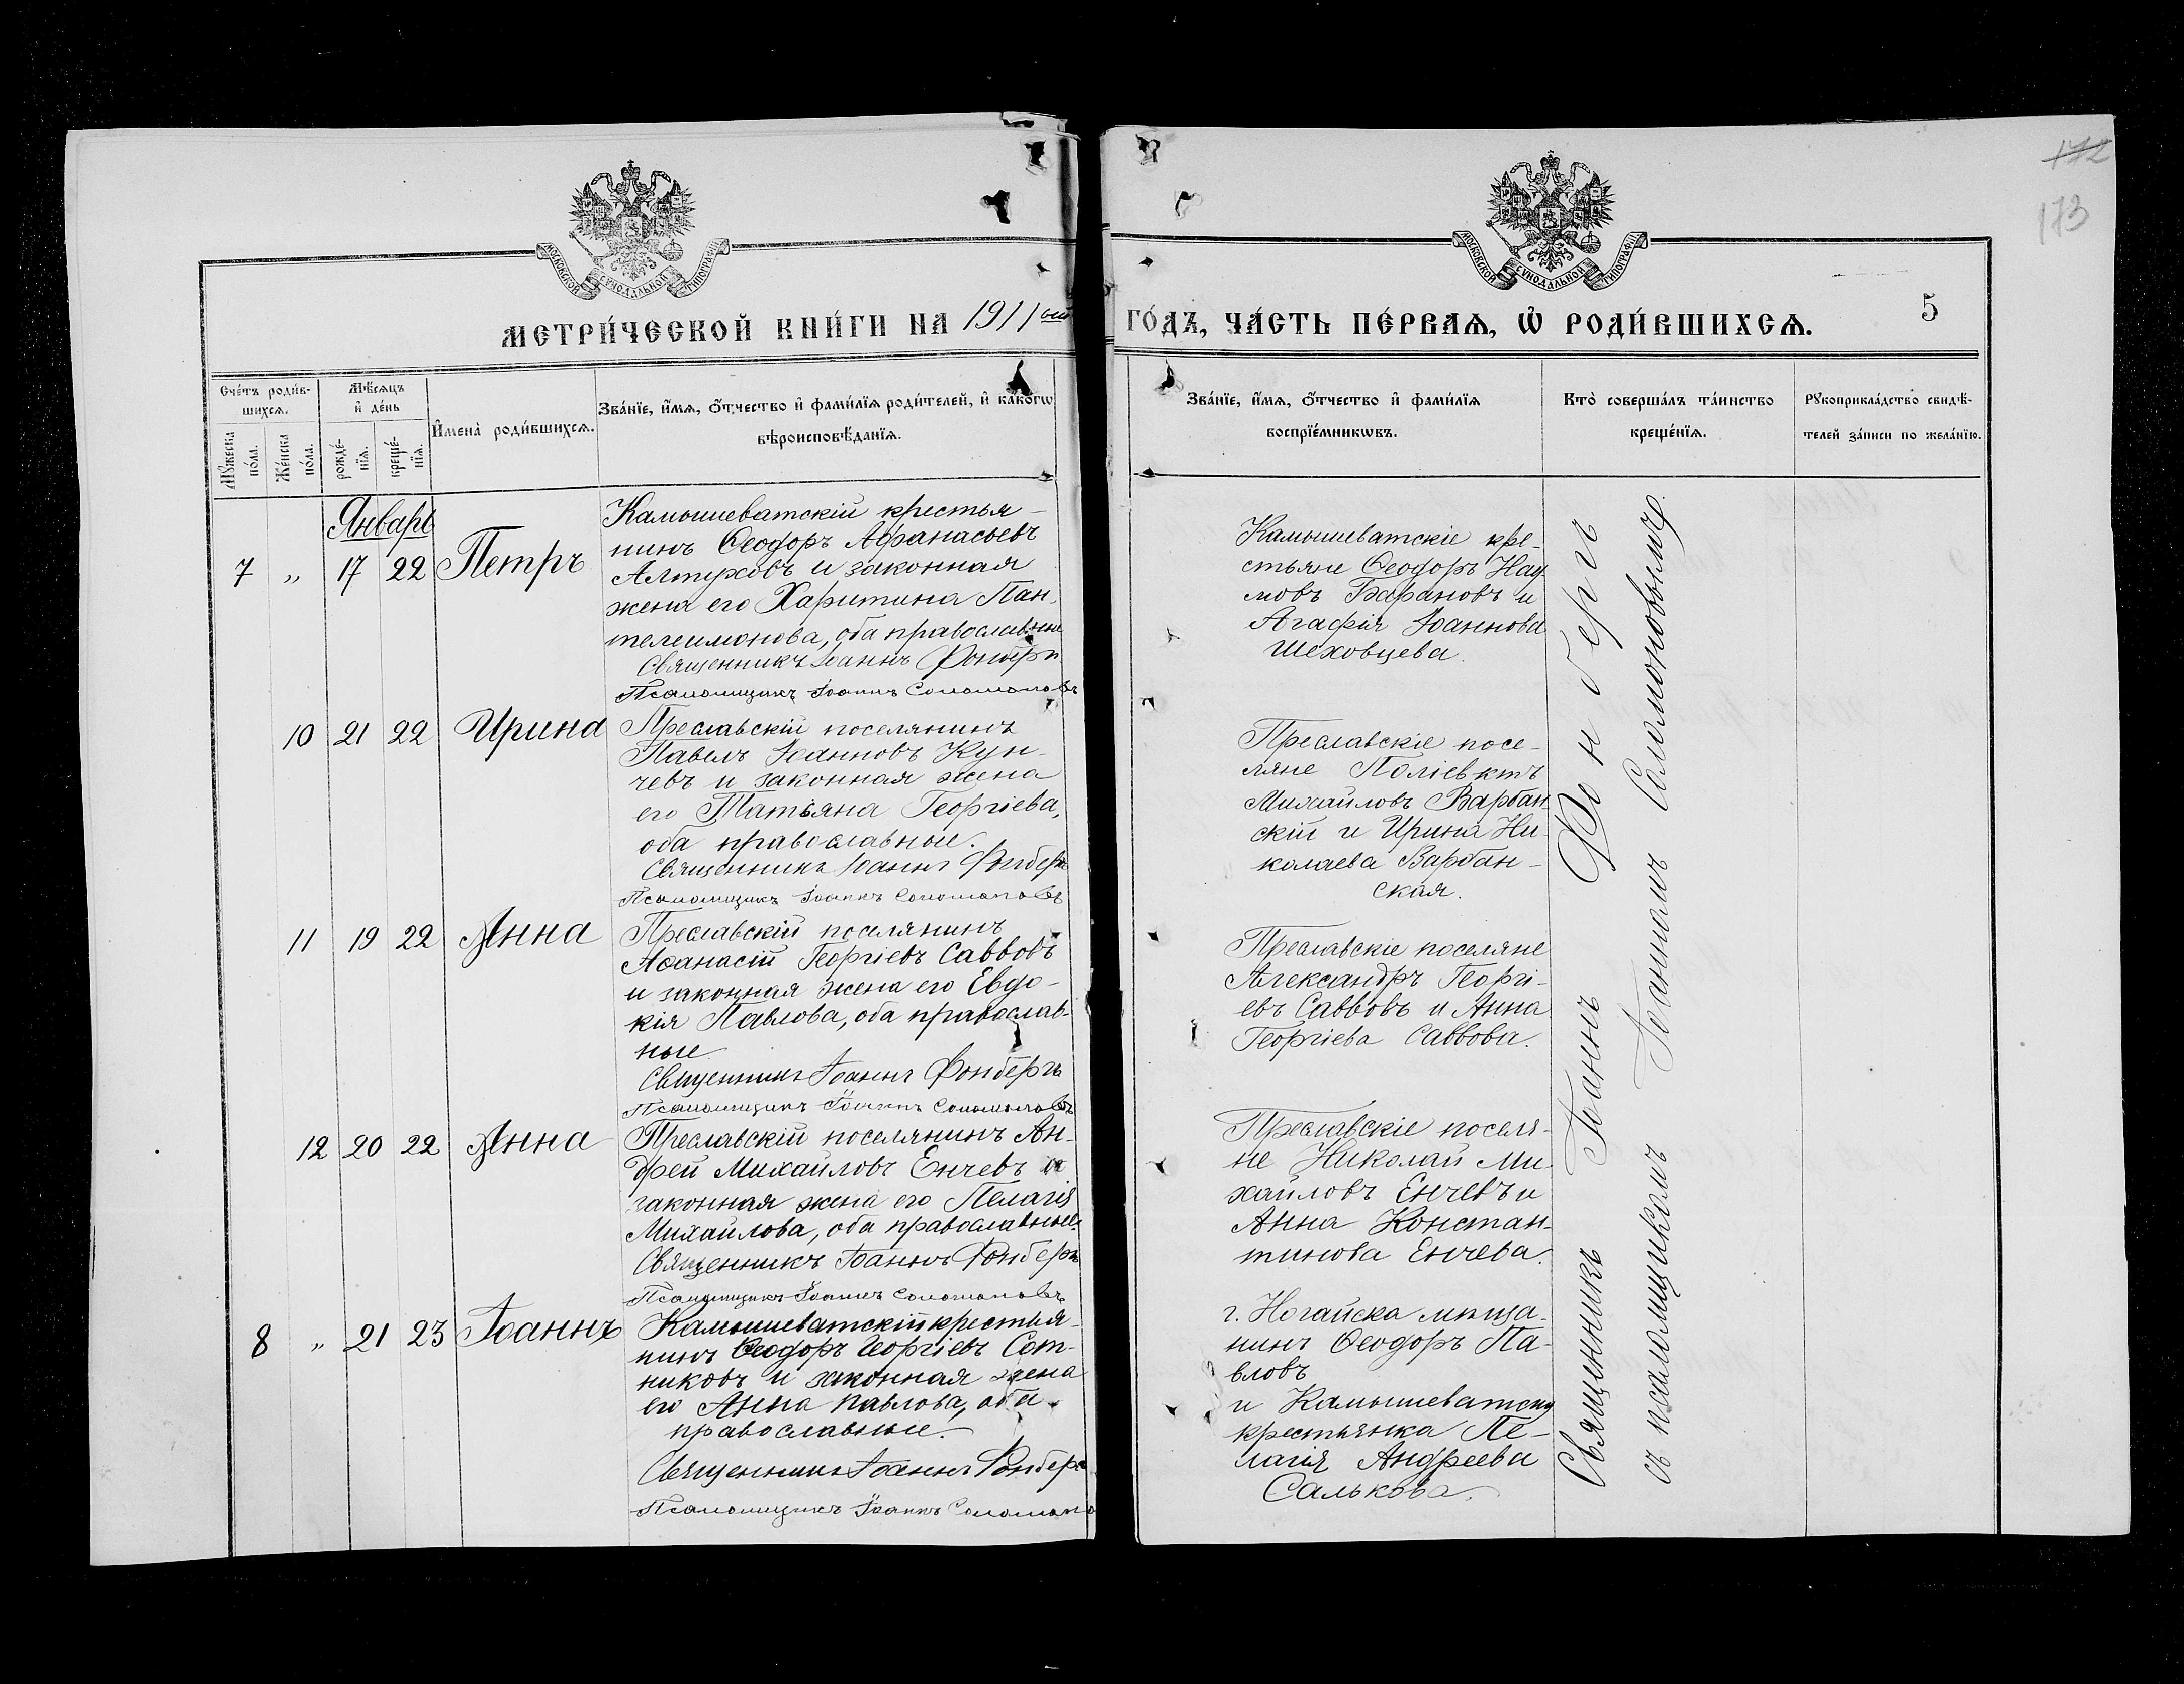 172
173
МОСКОВСКОЙ СѴНОДАЛЬНОЙ ТИПОГРАФІИ
МОСКОВСКОЙ СѴНОДАЛЬНОЙ ТИПОГРАФІИ
МЕТРИ́ЧЕСКОЙ КНИ́ГИ НА 1911ый
ГО́ДЪ, ЧА́СТЬ ПЕ́РВАѦ, Ѡ҆ РОДИ́ВШИХСѦ.
5
Сче́тъ роди́в-
шихсѧ.
Мꙋ́жеска по́ла.
Же́нска по́ла.
Мѣ́сѧцъ
и҆ де́нь
рожде́-
нїѧ.
креще́-
нїѧ.
И҆мена̀ роди́вшихсѧ.
Зва́нїе, и҆́мѧ, ѻ҆́тчество и҆ фами́лїѧ роди́телей, и҆ како́гѡ
вѣроисповѣ́данїѧ.
Зва́нїе, и҆́мѧ, ѻ҆́тчество и҆ фами́лїѧ
воспрїе́мникѡвъ.
Кто̀ соверша́лъ та́инство
креще́нїѧ.
Рꙋкоприкла́дство свидѣ́-
телей за́писи по жела́нїю.
Январь
7 " 17 22 Петръ
Камышеватскій крестья-
нинъ Ѳеодоръ Аѳанасьевъ
Алтуховъ и законная
жена его Харитина Пан-
телеимонова, оба православные
Священникъ Іоаннъ Фонбергъ
Псаломщикъ Іоаннъ Соломоновъ
Камышеватскіе кре-
стьяне Ѳеодоръ Нау-
мовъ Барановъ и
Агафія Іоаннова
Шеховцева.
10 21 22 Ирина
Преславскій поселянинъ
Павелъ Іоанновъ Кун-
чевъ и законная жена
его Татьяна Георгіева,
оба православные.
Священникъ Іоаннъ Фонбергъ
Псаломщикъ Іоаннъ Соломоновъ
Преславскіе посе-
ляне Поліевктъ
Михайловъ Варбан-
скій и Ирина Ни-
колаева Варбан-
ская.
11 19 22 Анна
Преславскій поселянинъ
Аѳанасій Георгіевъ Саввовъ
и законная жена его Евдо-
кія Павлова, оба православ-
ные
Священникъ Іоаннъ Фонбергъ
Псаломщикъ Іоаннъ Соломоновъ
Преславскіе поселяне
Александръ Георгі-
евъ Саввовъ и Анна
Георгіева Саввова.
12 20 22 Анна
Преславскій поселянинъ Ан-
дрей Михайловъ Енчевъ и
законная жена его Пелагія
Михайлова, оба православные.
Священникъ Іоаннъ Фонбергъ
Псаломщикъ Іоаннъ Соломоновъ
Преславскіе поселя-
не Николай Ми-
хайловъ Енчевъ и
Анна Констан-
тинова Енчева.
8 " 21 23 Іоаннъ
Камышеватскій крестья-
нинъ Ѳеодоръ Георгіевъ Сот-
никовъ и законная жена
его Анна Павлова, оба
православные.
Священникъ Іоаннъ Фонбергъ
Псаломщикъ Іоаннъ Соломоно
г. Ногайска мѣща-
нинъ Ѳеодоръ Па-
вловъ
и Камышеватская
крестьянка Пе-
лагія Андреева
Салькова.
Священникъ Іоаннъ Фонбергъ
съ псаломщикомъ Іоанномъ Соломоновымъ.